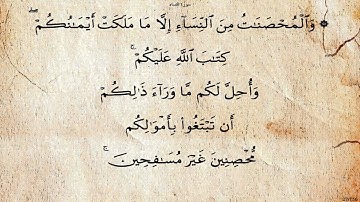 ۞ وَٱلْمُحْصَنَٰتُ مِنَ ٱلنِّسَآءِ إِلَّا مَا مَلَكَتْ أَيْمَٰنُكُمْ ۖ
كِتَٰبَ ٱللَّهِ عَلَيْكُمْ ۚ
وَأُحِلَّ لَكُم مَّا وَرَآءَ ذَٰلِكُمْ
أَن تَبْتَغُوا۟ بِأَمْوَٰلِكُم
مُّحْصِنِينَ غَيْرَ مُسَٰفِحِينَ ۚ